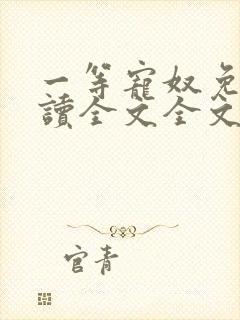 一等寵奴免
讀全文全文
官青